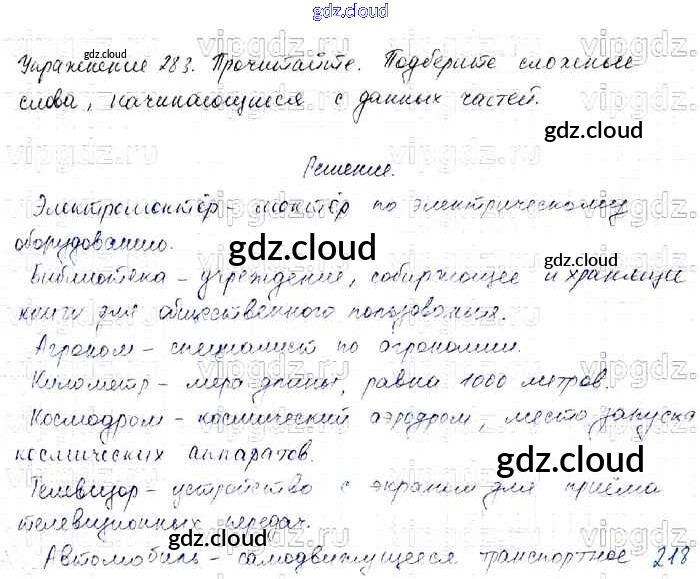 gdz.cloud
Упражнение 283. Прочитайте. Подберите сложные
слова, начинающиеся с данных частей.
gdz.cloud
gdz.cloud
Решение.
Электромонтёр - монтёр по электрическому
оборудованию.
gdz.cloud
gdz.cloud
Библиотека - учреждение, собирающее и хранящее
книги для общественного пользования.
Агроном - специалист по агрономии.
Километр - мера длины, равна 1000 метров.
Космодром - космический аэродром, место запуска
космических аппаратов.
gdz.cloud
Телевизор - устройство с экраном для приёма
телевизионных передач.
gdz.cloud
gdz.cloud
Автомобиль - самодвижущееся транспортное 218